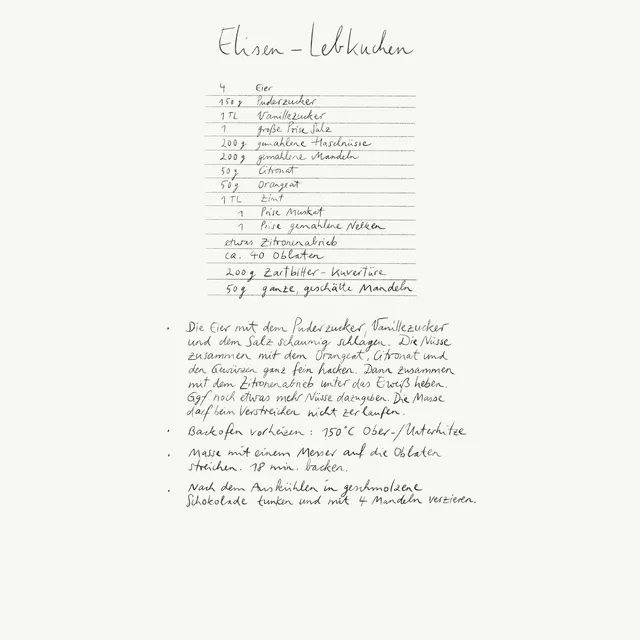 Elisen - Lebkuchen
4 Eier
150 g Puderzucker
1 TL Vanillezucker
1 große Prise Salz
200 g gemahlene Haselnüsse
200 g gemahlene Mandeln
50 g Citronat
50 g Orangeat
1 TL Zimt
1 Prise Muskat
1 Prise gemahlene Nelken
etwas Zitronenabrieb
ca. 40 Oblaten
200 g Zartbitter - Kuvertüre
50 g ganze, geschälte Mandeln
· Die Eier mit dem Puderzucker, Vanillezucker
und dem Salz schaumig schlagen. Die Nüsse
zusammen mit dem Orangeat, Citronat und
den Gewürzen ganz fein hacken. Dann zusammen
mit dem Zitronenabrieb unter das Eiweiß heben.
Ggf noch etwas mehr Nüsse dazugeben. Die Masse
darf beim Verstreichen nicht zerlaufen.
· Backofen vorheizen : 150°C Ober-/Unterhitze
· Masse mit einem Messer auf die Oblaten
streichen. 18 min. backen.
· Nach dem Auskühlen in geschmolzene
Schokolade tunken und mit 4 Mandeln verzieren.